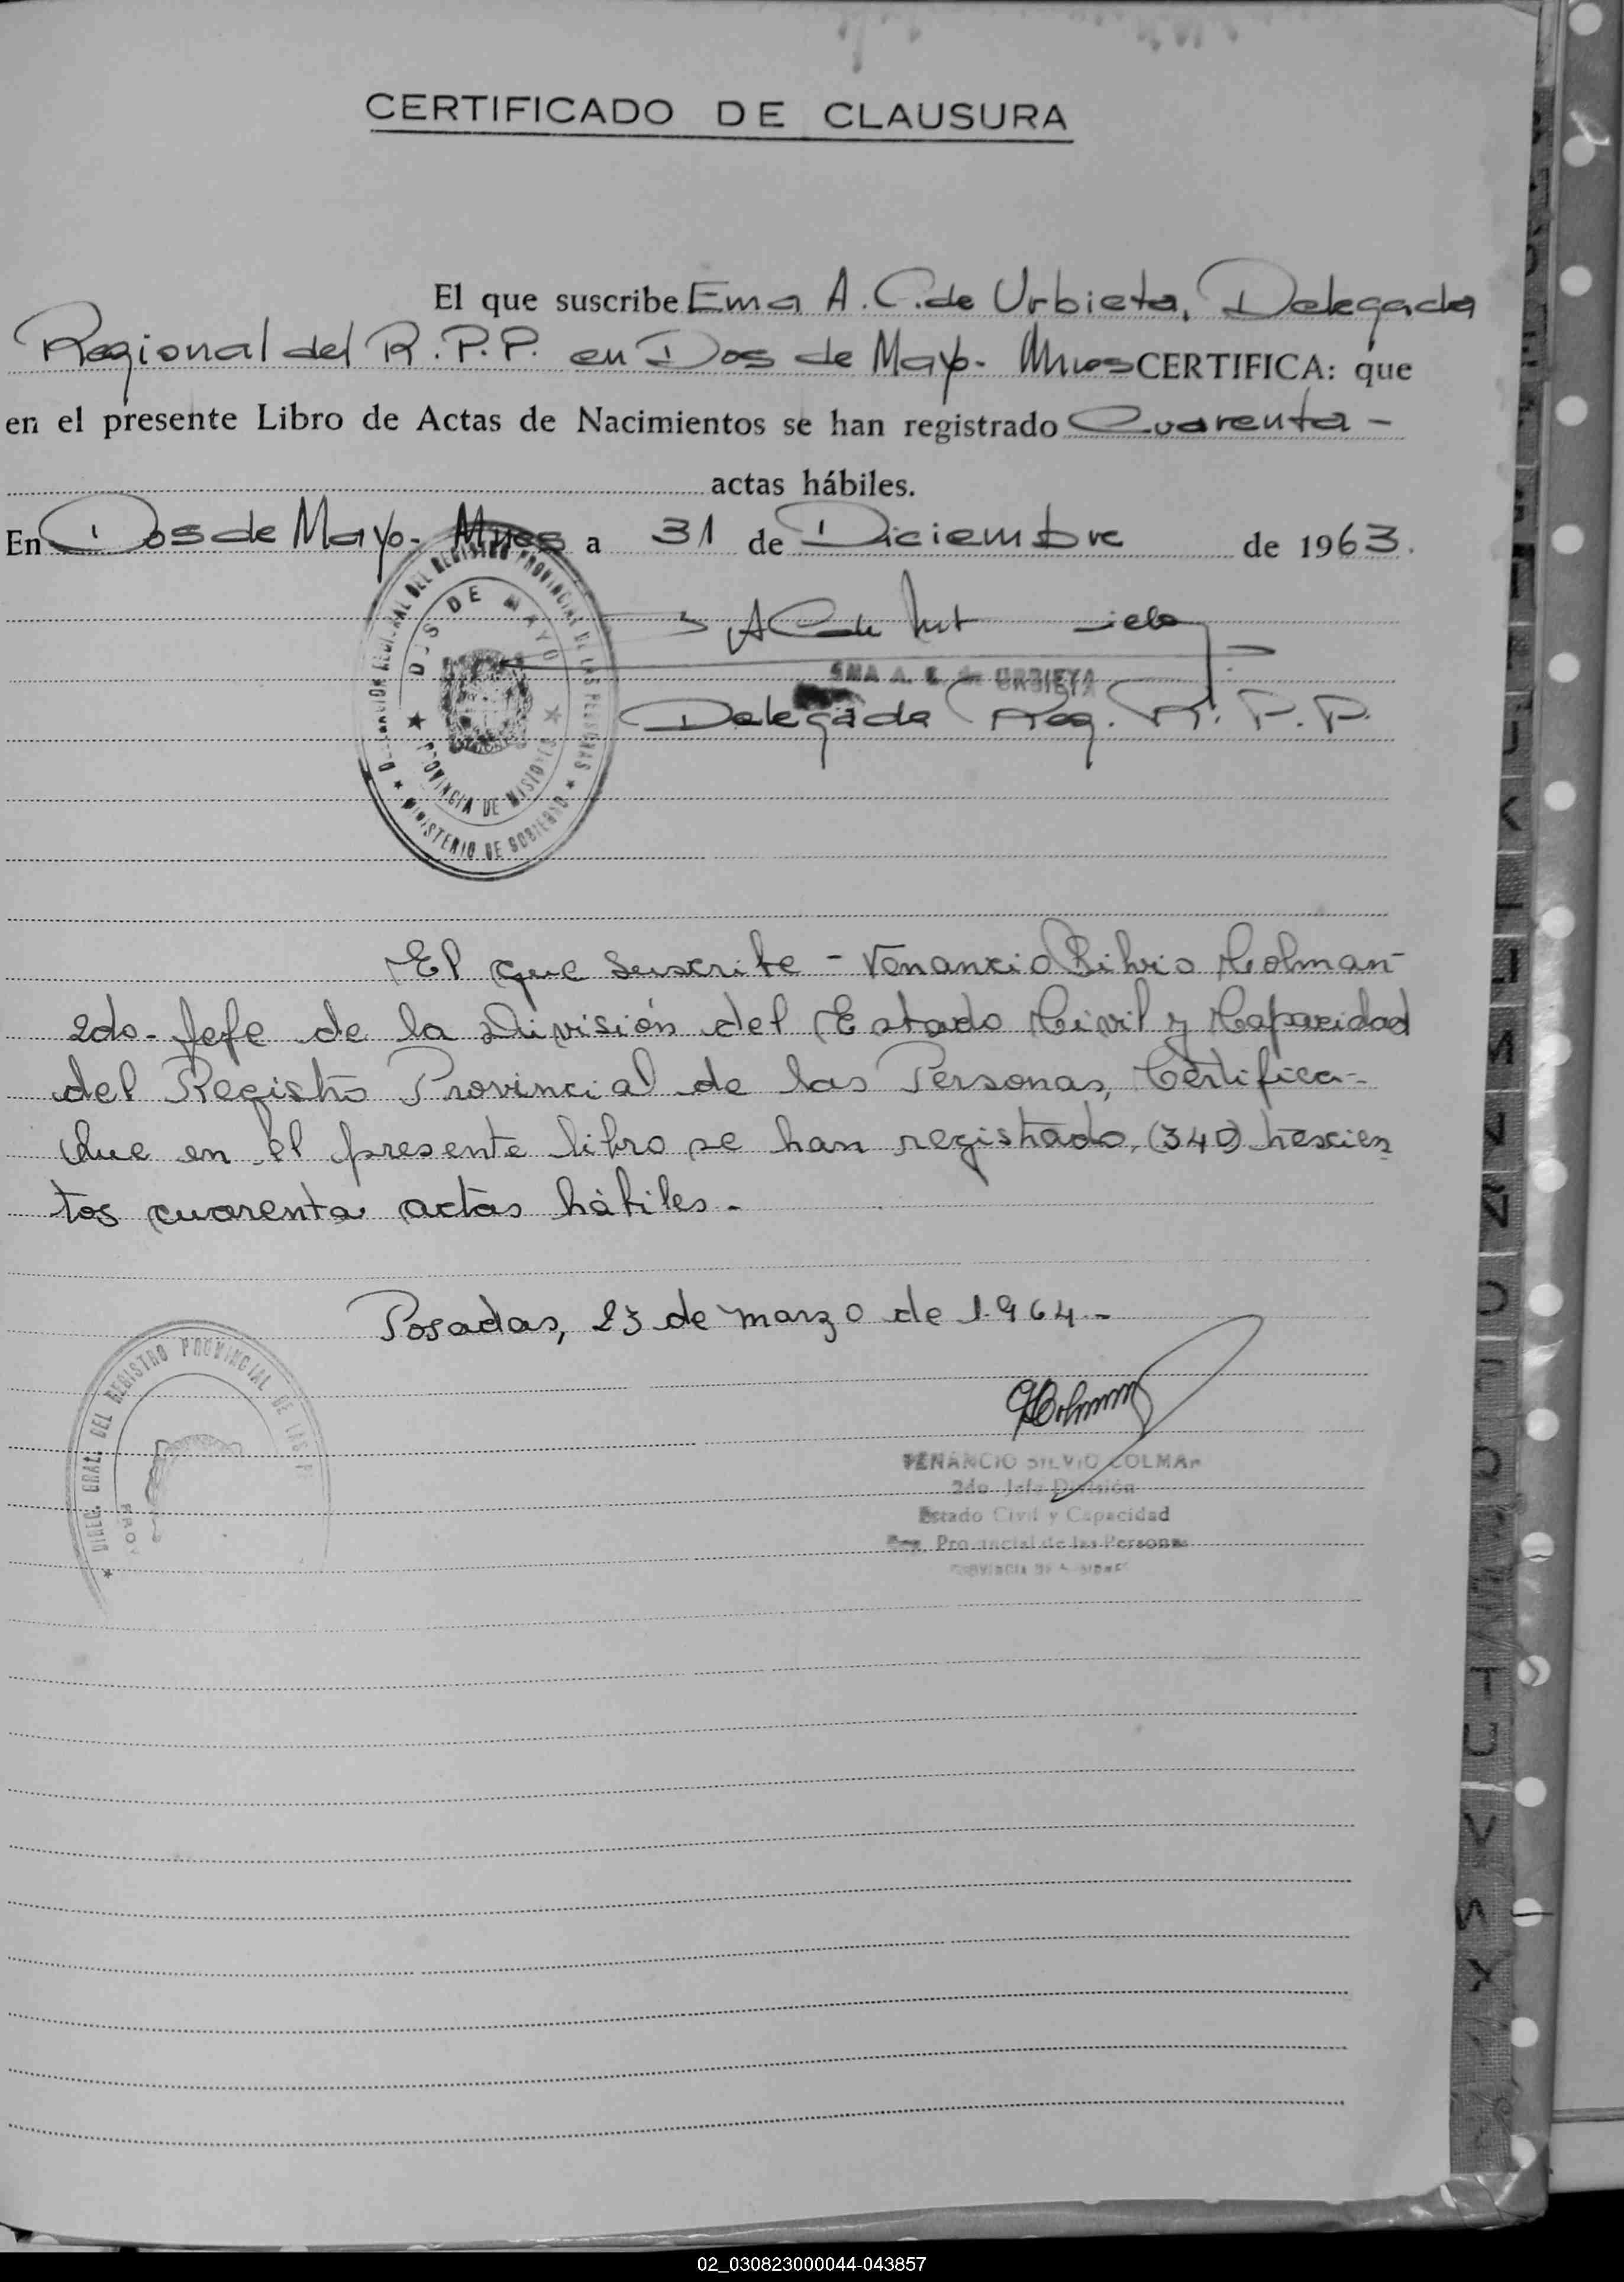 CERTIFICADO DE CLAUSURA
El que suscribe Ema A. C. de Urbieta, Delegada
Regional del R. P. P. en Dos de Mayo - Mnes CERTIFICA: que
en el presente Libro de Actas de Nacimientos se han registrado Cuarenta -
actas hábiles.
En Dos de Mayo - Mnes a 31 de Diciembre de 1963.
DELEGACION REGIONAL DEL REGISTRO PROVINCIAL DE LAS PERSONAS
DOS DE MAYO
PROVINCIA DE MISIONES
MINISTERIO DE GOBIERNO
EMA A. C. de URBIETA
Delegada Reg. R. P. P.
El que suscribe - Venancio Silvio Colman -
2do - Jefe de la División del Estado Civil y Capacidad
del Registro Provincial de las Personas, Certifica -
Que en el presente libro se han registrado, (340) trescien
tos cuarenta actas hábiles -
Posadas, 23 de marzo de 1964 -
DIREC. GRAL. DEL REGISTRO PROVINCIAL DE LAS P
PROV
VENANCIO SILVIO COLMAN
2do. Jefe División
Estado Civil y Capacidad
Reg. Provincial de las Personas
PROVINCIA DE MISIONES
02_030823000044-043857